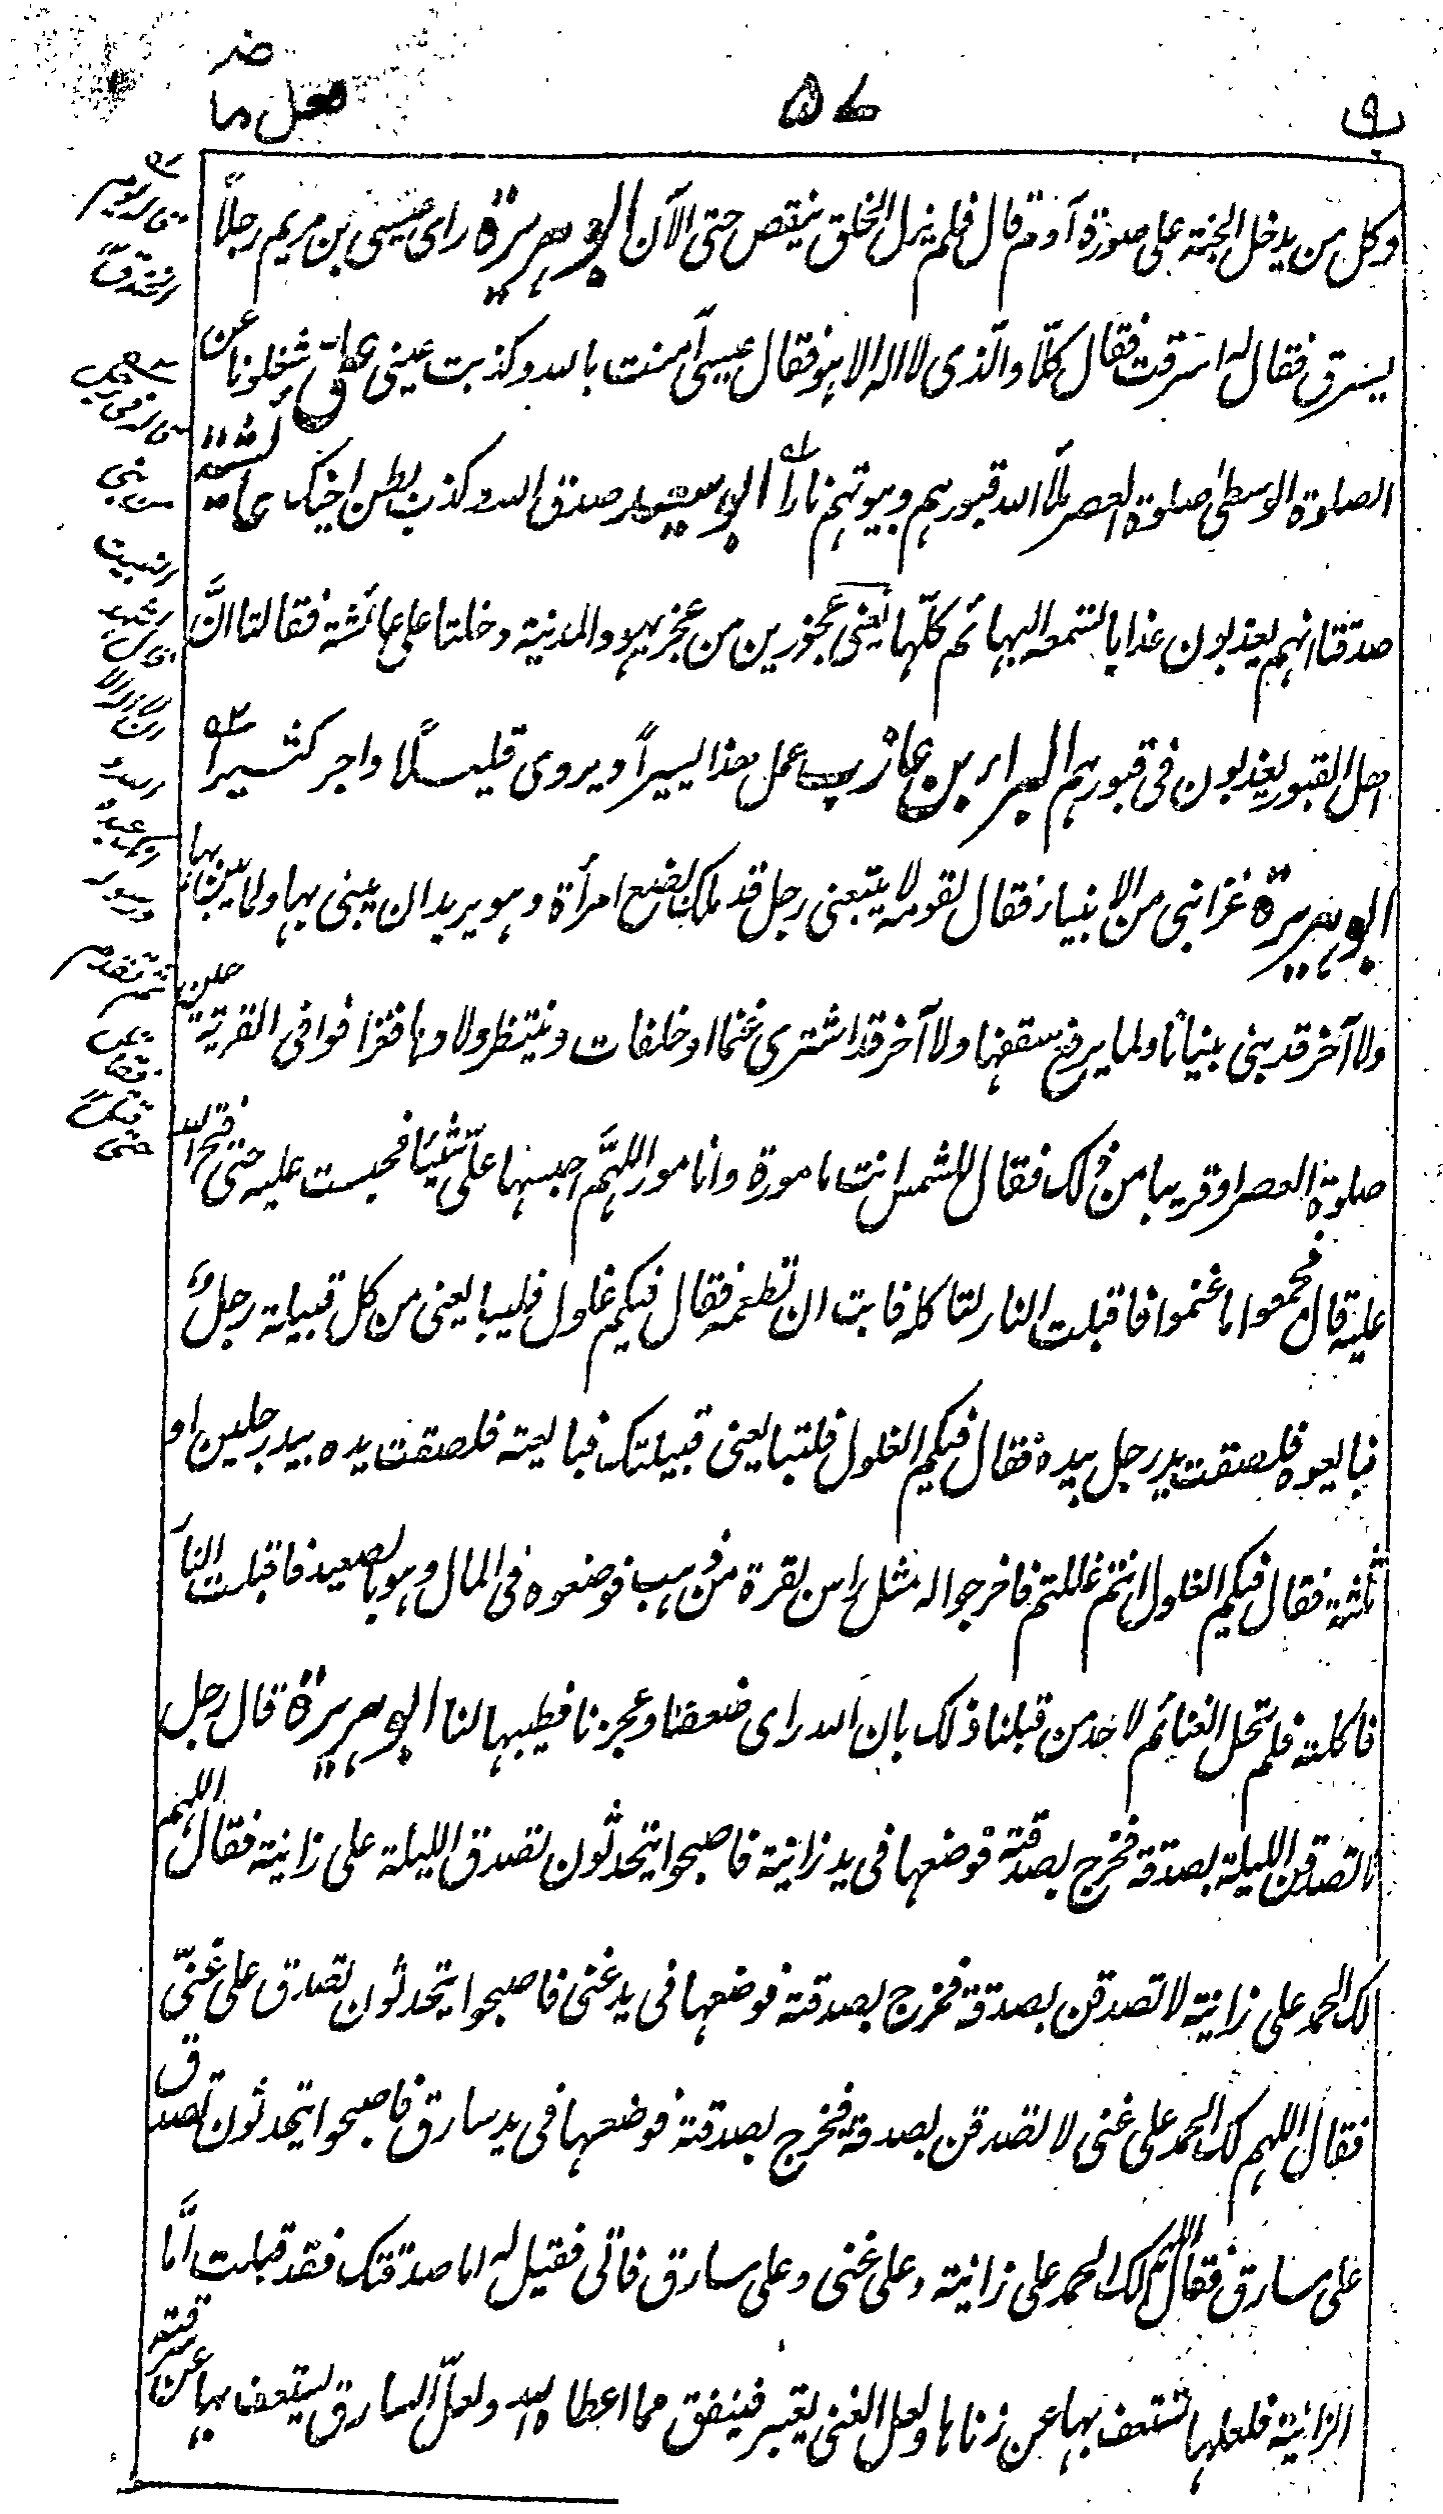 وكل من يدخل الجنة على صورة آدم قال فلم يزل الخلق ينقص حتى الآن ابو هريرة راى عيسى بن مريم رجلاً
يسرق فقال له اسرقت فقال كلّا والّذى لا اله الا هو فقال عيسى آمنت بالله وكذبت عينى على شغلونا عن
الصلوة الوسطى صلوة العصر ملأ الله قبورهم وبيوتهم ناراً ابو سعيد صدق الله وكذب بطن اخيك عائشة
صدقتا انهم يعذبون عذابا تسمعه البهائم كلّها يعنى عجوزين من عجز يهود المدينة دخلتا على عائشة فقالتا انَّ
اهل القبور يعذبون فى قبورهم البراء بن عازب عمل هذا يسيراً ويروى قليلاً واجر كثيراً
ابو هريرة غزا نبى من الانبياء فقال لقومه لا يتبعنى رجل قد ملك بضع امرأة وهو يريد ان يبنى بها ولما يبن بها
ولا آخر قد بنى بنياناً ولما يرفع سقفها ولا آخر قد اشترى غنما او خلفات وينتظر ولادها فغزا فوافى القرية حين
صلوة العصر او قريبا من ذلك فقال للشمس انت مامورة وانا مامور اللهمَّ احبسها علىّ شيئا فحبست عليه حتى فتح الله
عليه قال فجمعوا ما غنموا فاقبلت النار لتاكله فابت ان تطعمه فقال فيكم غلول فليبايعنى من كل قبيلة رجل
فبايعوه فلصقت يد رجل بيده فقال فيكم الغلول فلتبايعنى قبيلتك فبايعته فلصقت يده بيد رجلين او
ثلثة فقال فيكم الغلول انتم غللتم فاخرجوا له مثل راس بقرة من ذهب فوضعوه فى المال وهو بالصعيد فاقبلت النار
فاكلته فلم تحل الغنائم لاحد من قبلنا ذلك بان الله راى ضعفنا وعجزنا فطيبها لنا ابو هريرة قال رجل
لاتصدقن الليلة بصدقة فخرج بصدقته فوضعها فى يد زانية فاصبحوا يتحدثون تصدق الليلة على زانية فقال اللهم
لك الحمد على زانية لاتصدقن بصدقة فخرج بصدقته فوضعها فى يد غنى فاصبحوا يتحدثون تصدق على غنىّ
فقال اللهم لك الحمد على غنى لاتصدقن بصدقة فخرج بصدقته فوضعها فى يد سارق فاصبحوا يتحدثون تصدق
على سارق فقال اللهم لك الحمد على زانية وعلى غنى وعلى سارق فاتى فقيل له اما صدقتك فقد قبلت امَّا
الزانية فلعلها تستعف بها عن زناها ولعل الغنى يعتبر فينفق مما اعطاه الله ولعلّ السارق يستعف بها عن سرقته